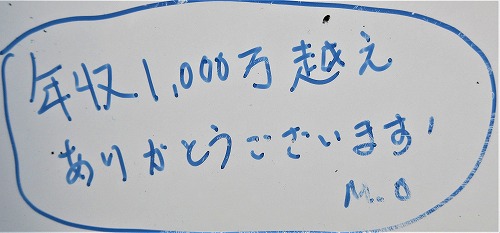 年収1,000万越え
ありがとうございます!
M.O